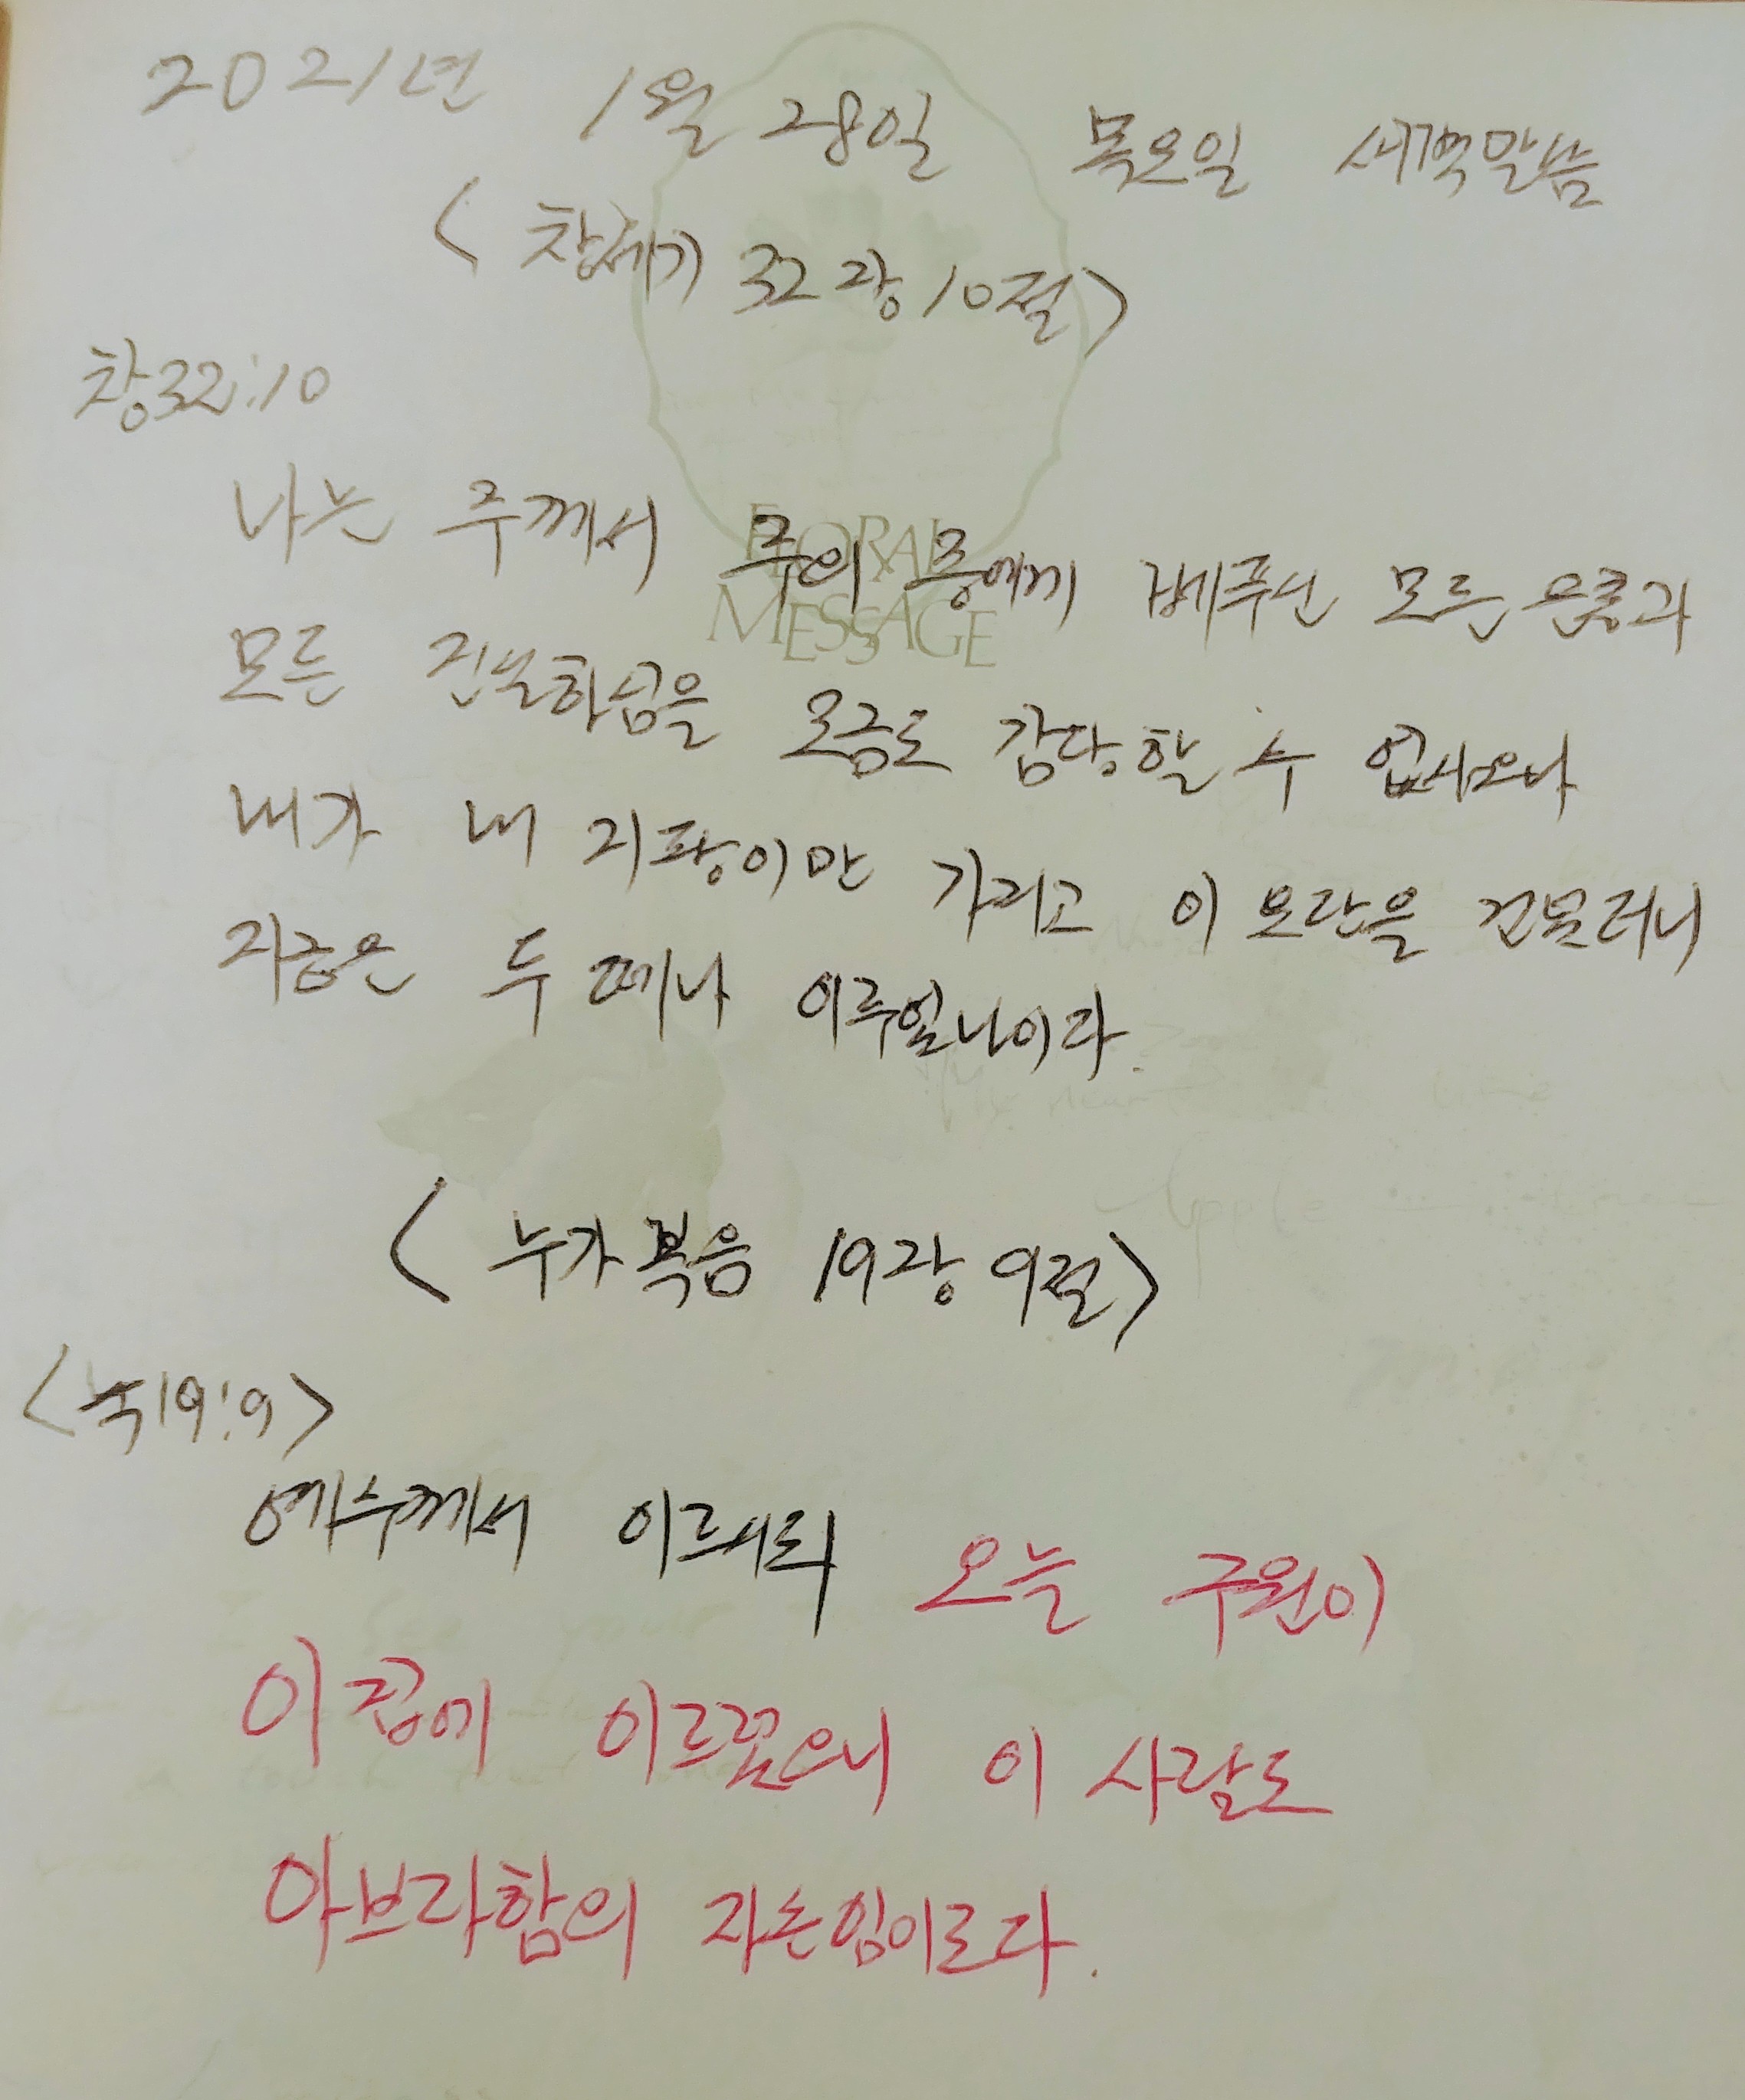 2021년 1월 28일 목요일 새벽말씀
< 창세기 32장 10절 >
창32:10
나는 주께서 주의 종에게 베푸신 모든 은총과
FLORAL
MESSAGE
모든 진실하심을 조금도 감당할 수 없사오나
내가 내 지팡이만 가지고 이 요단을 건넜더니
지금은 두 떼나 이루었나이다.
< 누가복음 19장 9절 >
<눅19:9>
예수께서 이르시되 오늘 구원이
이 집에 이르렀으니 이 사람도
아브라함의 자손임이로다.